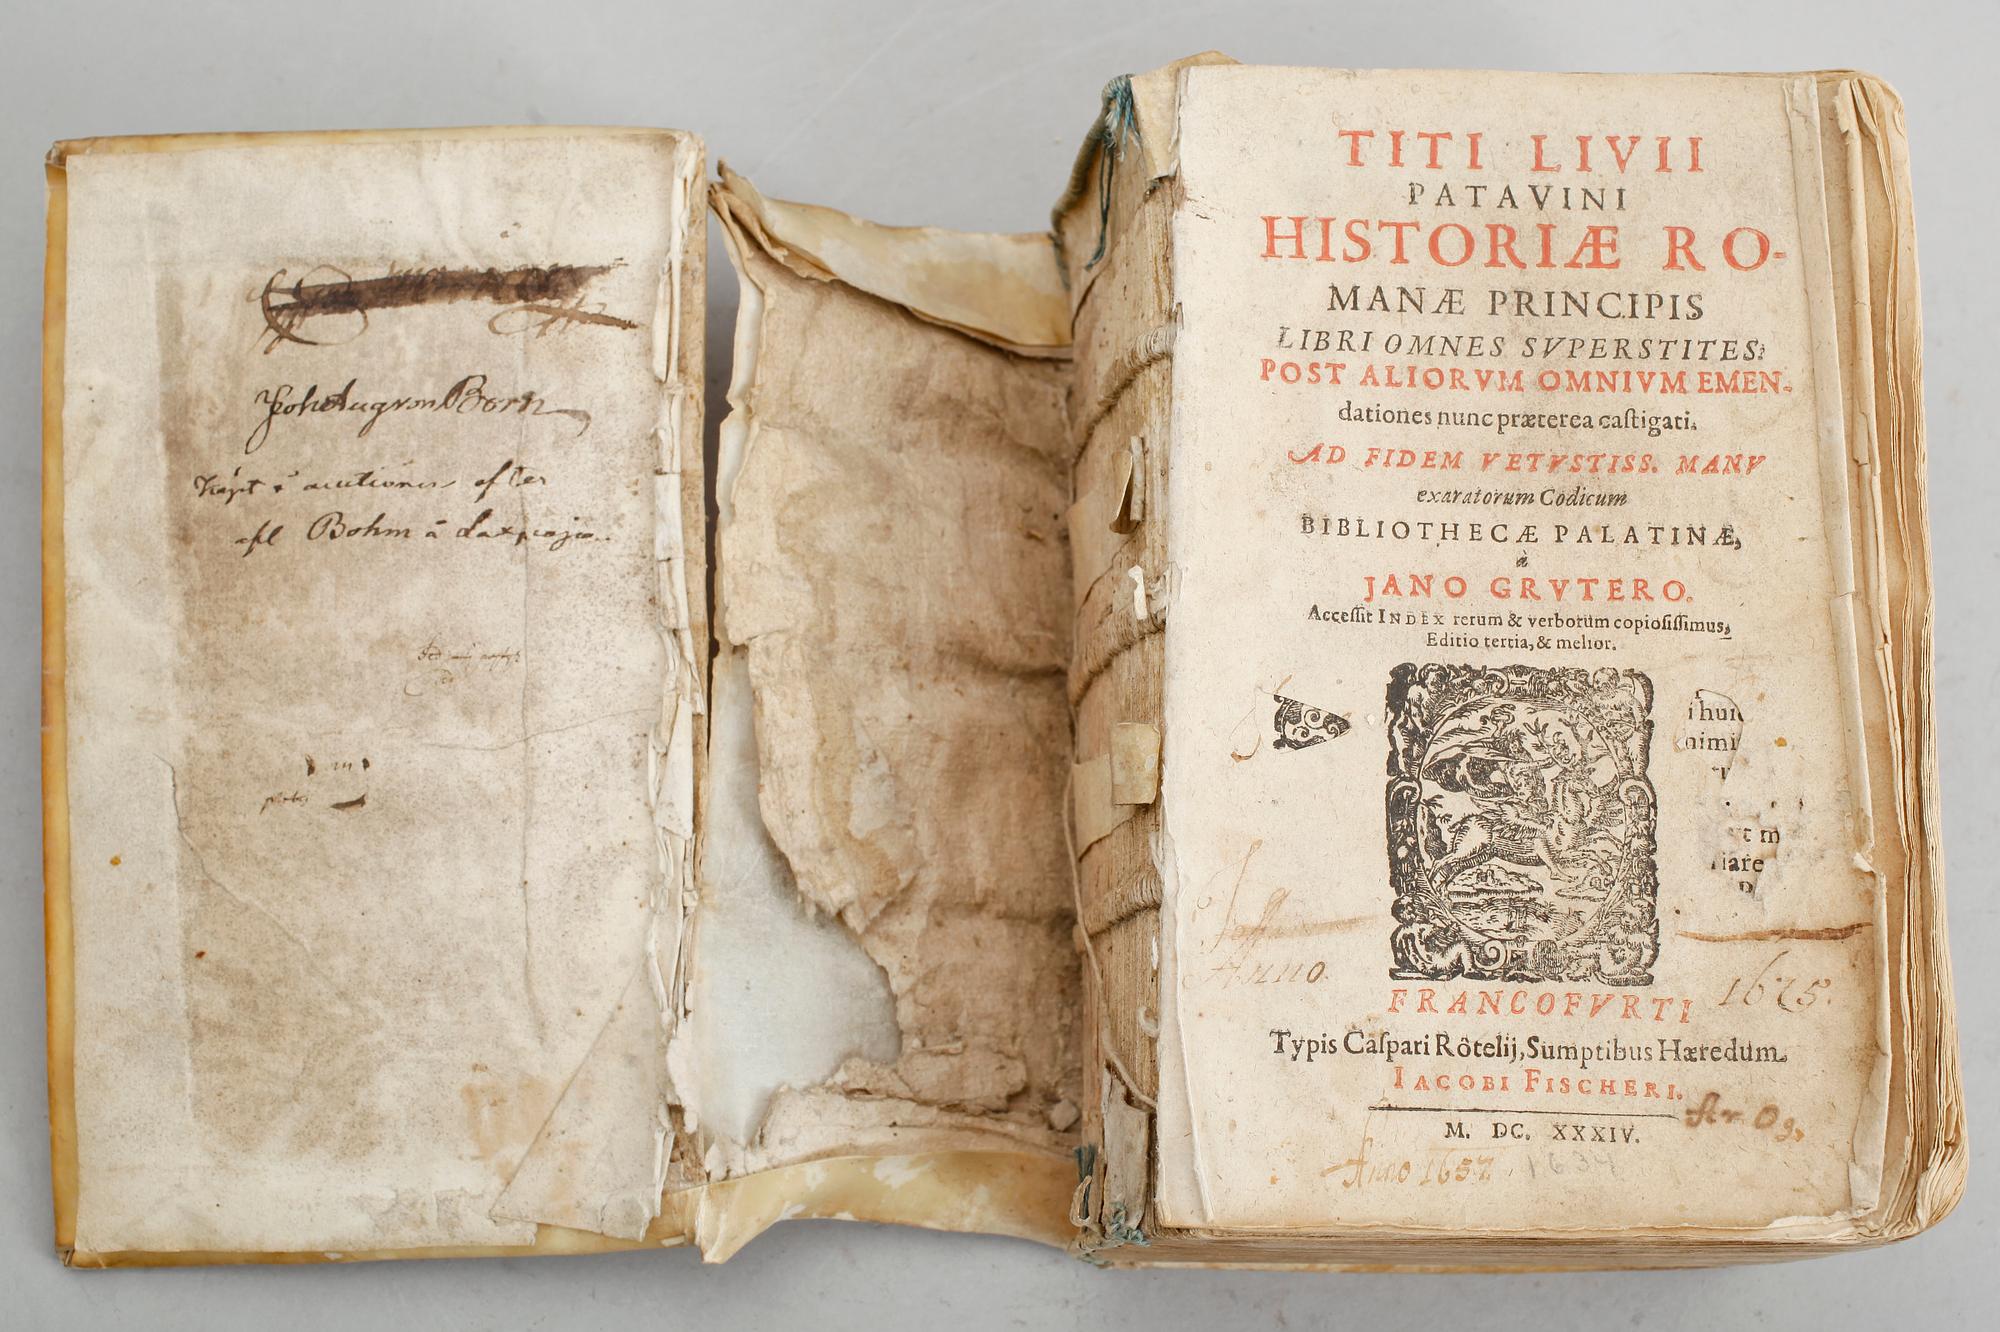 Joh Aug von Born
Kiöpt i auctionen efter
afl Bohm å
TITI LIVII
PATAVINI
HISTORIÆ RO-
MANÆ PRINCIPIS
LIBRI OMNES SVPERSTITES:
POST ALIORVM OMNIVM EMEN-
dationes nunc præterea caſtigati.
AD FIDEM VETVSTISS. MANV
exaratorum Codicum
BIBLIOTHECÆ PALATINÆ,
à
JANO GRVTERO.
Acceſſit INDEX rerum & verborum copioſiſſimus,
Editio tertia, & melior.
Anno 1675.
FRANCOFVRTI
Typis Caſpari Rôtelij, Sumptibus Hæredum
IACOBI FISCHERI.
M. DC. XXXIV.
Anno 1657 1634